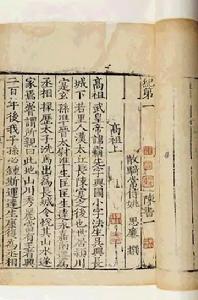 紀第一 陳書
散騎常侍姚 思廉 撰
高祖上
高祖武皇帝諱霸先字興國小字法生吳興長
城下若里人漢太丘長陳寔之後也世居潁川
寔玄孫準晉太尉準生匡匡生達永嘉南遷為
丞相掾歷太子洗馬出為長城令悅其山水遂
家焉嘗謂所親曰此地山川秀麗當有王者興
二百年後我子孫必鍾斯運達生康復為丞相